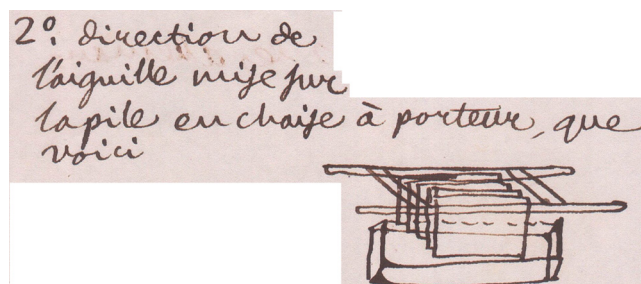 2º. direction de
l'aiguille mise sur
la pile en chaise à porteur, que
voici